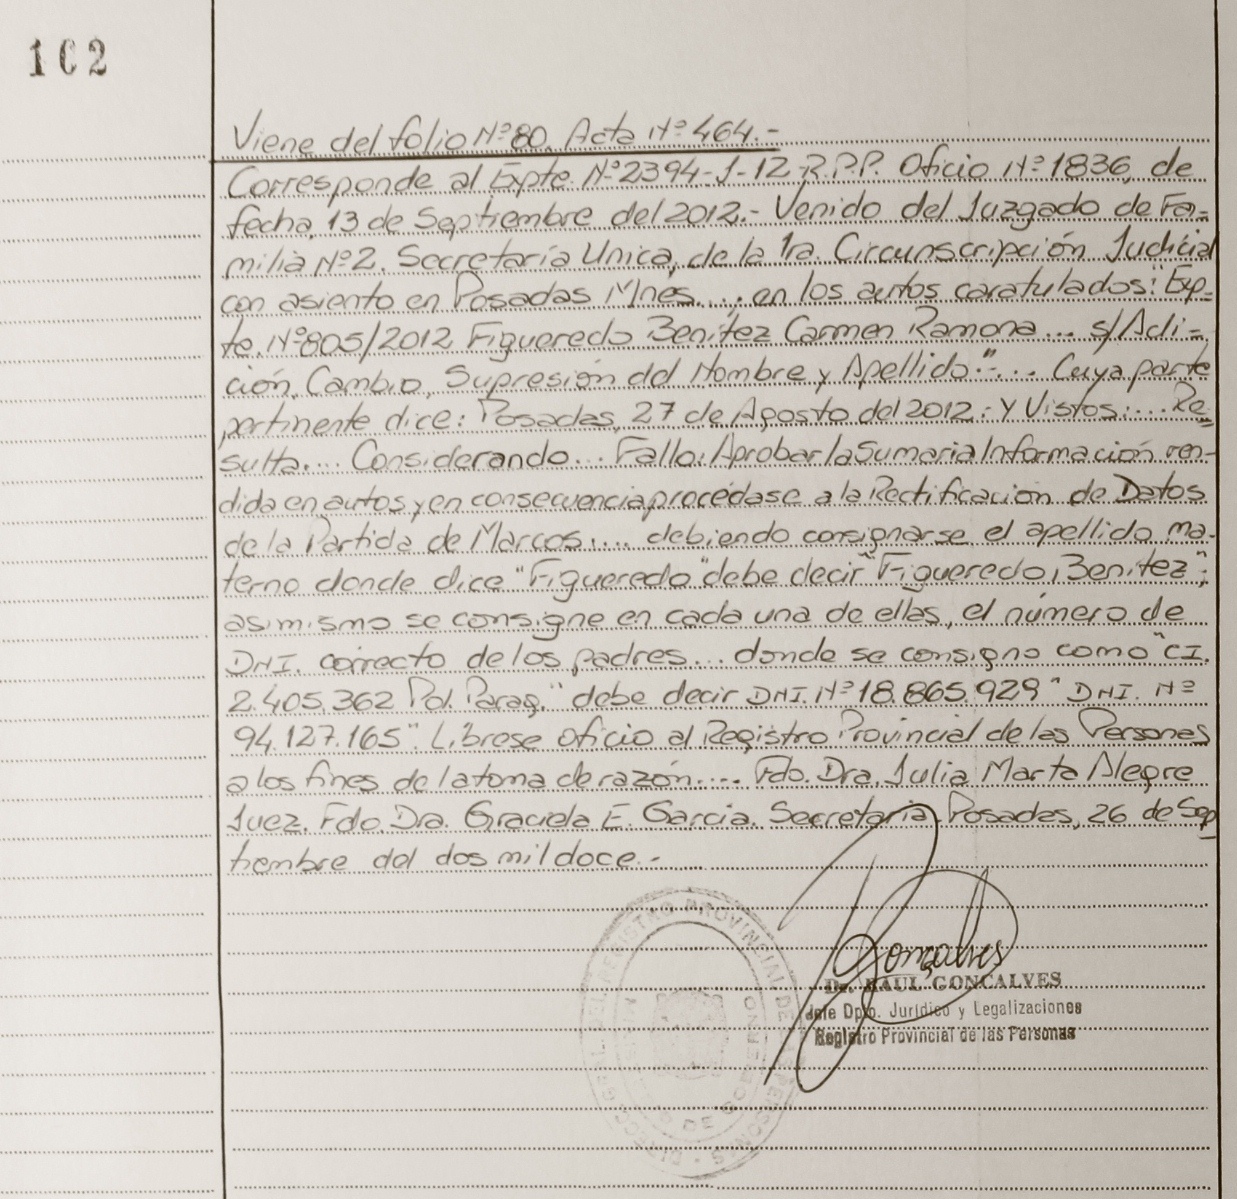 102
Viene del folio Nº 80. Acta Nº 464.-
Corresponde al Expte. Nº 2394-J-12-R.P.P. Oficio Nº 1836, de
fecha, 13 de Septiembre del 2012.- Venido del Juzgado de Fa-
milia Nº 2. Secretaría Unica, de la 1ra. Circunscripción Judicial
con asiento en Posadas Mnes.... en los autos caratulados: "Exp-
te. Nº 805/2012 Figueredo Benítez Carmen Ramona... s/Adi-
ción, Cambio, Supresión del Nombre y Apellido"-... Cuya parte
pertinente dice: Posadas, 27 de Agosto del 2012.- Y Vistos:... Re-
sulta.... Considerando... Fallo: Aprobar la Sumaria Información ren-
dida en autos y en consecuencia procédase a la Rectificación de Datos
de la Partida de Marcos.... debiendo consignarse el apellido ma-
terno donde dice "Figueredo" debe decir "Figueredo Benítez";
asimismo se consigne en cada una de ellas, el número de
DNI. correcto de los padres... donde se consigno como "CI.
2.405.362 Pol. Parag." debe decir DNI. Nº 18.865.929" DNI. Nº
94.127.165". Líbrese oficio al Registro Provincial de las Personas
a los fines de la toma de razón.... Fdo. Dra. Julia Marta Alegre
Juez. Fdo. Dra. Graciela E. Garcia. Secretaria. Posadas, 26 de Sep
tiembre del dos mil doce.-
Gonçalves
Dr. RAUL GONCALVES
Jefe Dpto. Jurídico y Legalizaciones
Registro Provincial de las Personas
DIRECC. GRAL. DEL REGISTRO PROVINCIAL DE LAS PERSONAS
DE GOBIERNO